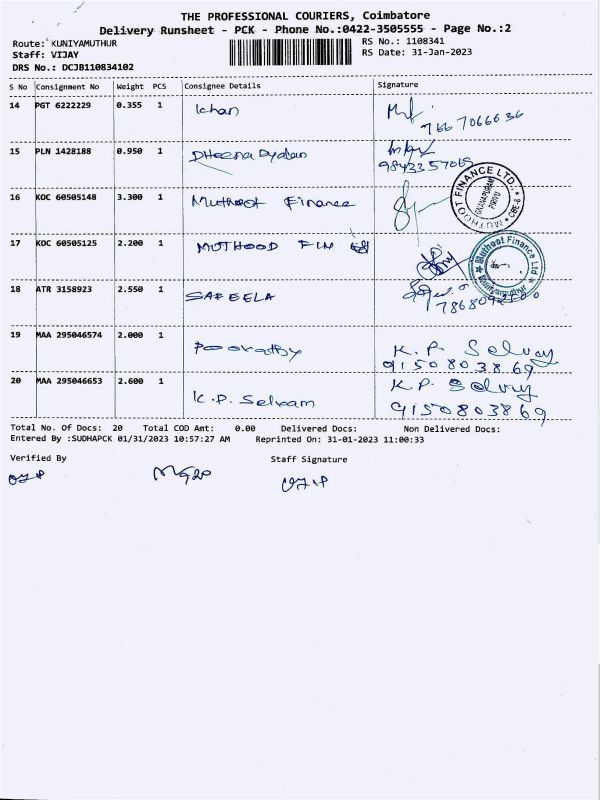 THE PROFESSIONAL COURIERS, Coimbatore
Delivery Runsheet - PCK - Phone No.:0422-3505555 - Page No.:2
Route: KUNIYAMUTHUR RS No.: 1108341
Staff: VIJAY RS Date: 31-Jan-2023
DRS No.: DCJB110834102
S No Consignment No Weight PCS Consignee Details Signature
14 PGT 6222229 0.355 1 Khan
766 7066636
15 PLN 1428188 0.950 1 DHeena Dyalan
9843357069
16 KOC 60505148 3.300 1 Muthoot Finance
MUTHOOT FINANCE LTD. * CBE-8 *
17 KOC 60505125 2.200 1 MUTHOOD FIN
Muthoot Finance Ltd
Kuniyamuthur
18 ATR 3158923 2.550 1 SAREELA
19 MAA 295046574 2.000 1 Poovathy K. P. Selvay
9150803869
20 MAA 295046653 2.600 1 K.P. Selvam K.P. Selvy
9150803869
Total No. Of Docs: 20 Total COD Amt: 0.00 Delivered Docs: Non Delivered Docs:
Entered By :SUDHAPCK 01/31/2023 10:57:27 AM Reprinted On: 31-01-2023 11:00:33
Verified By Staff Signature